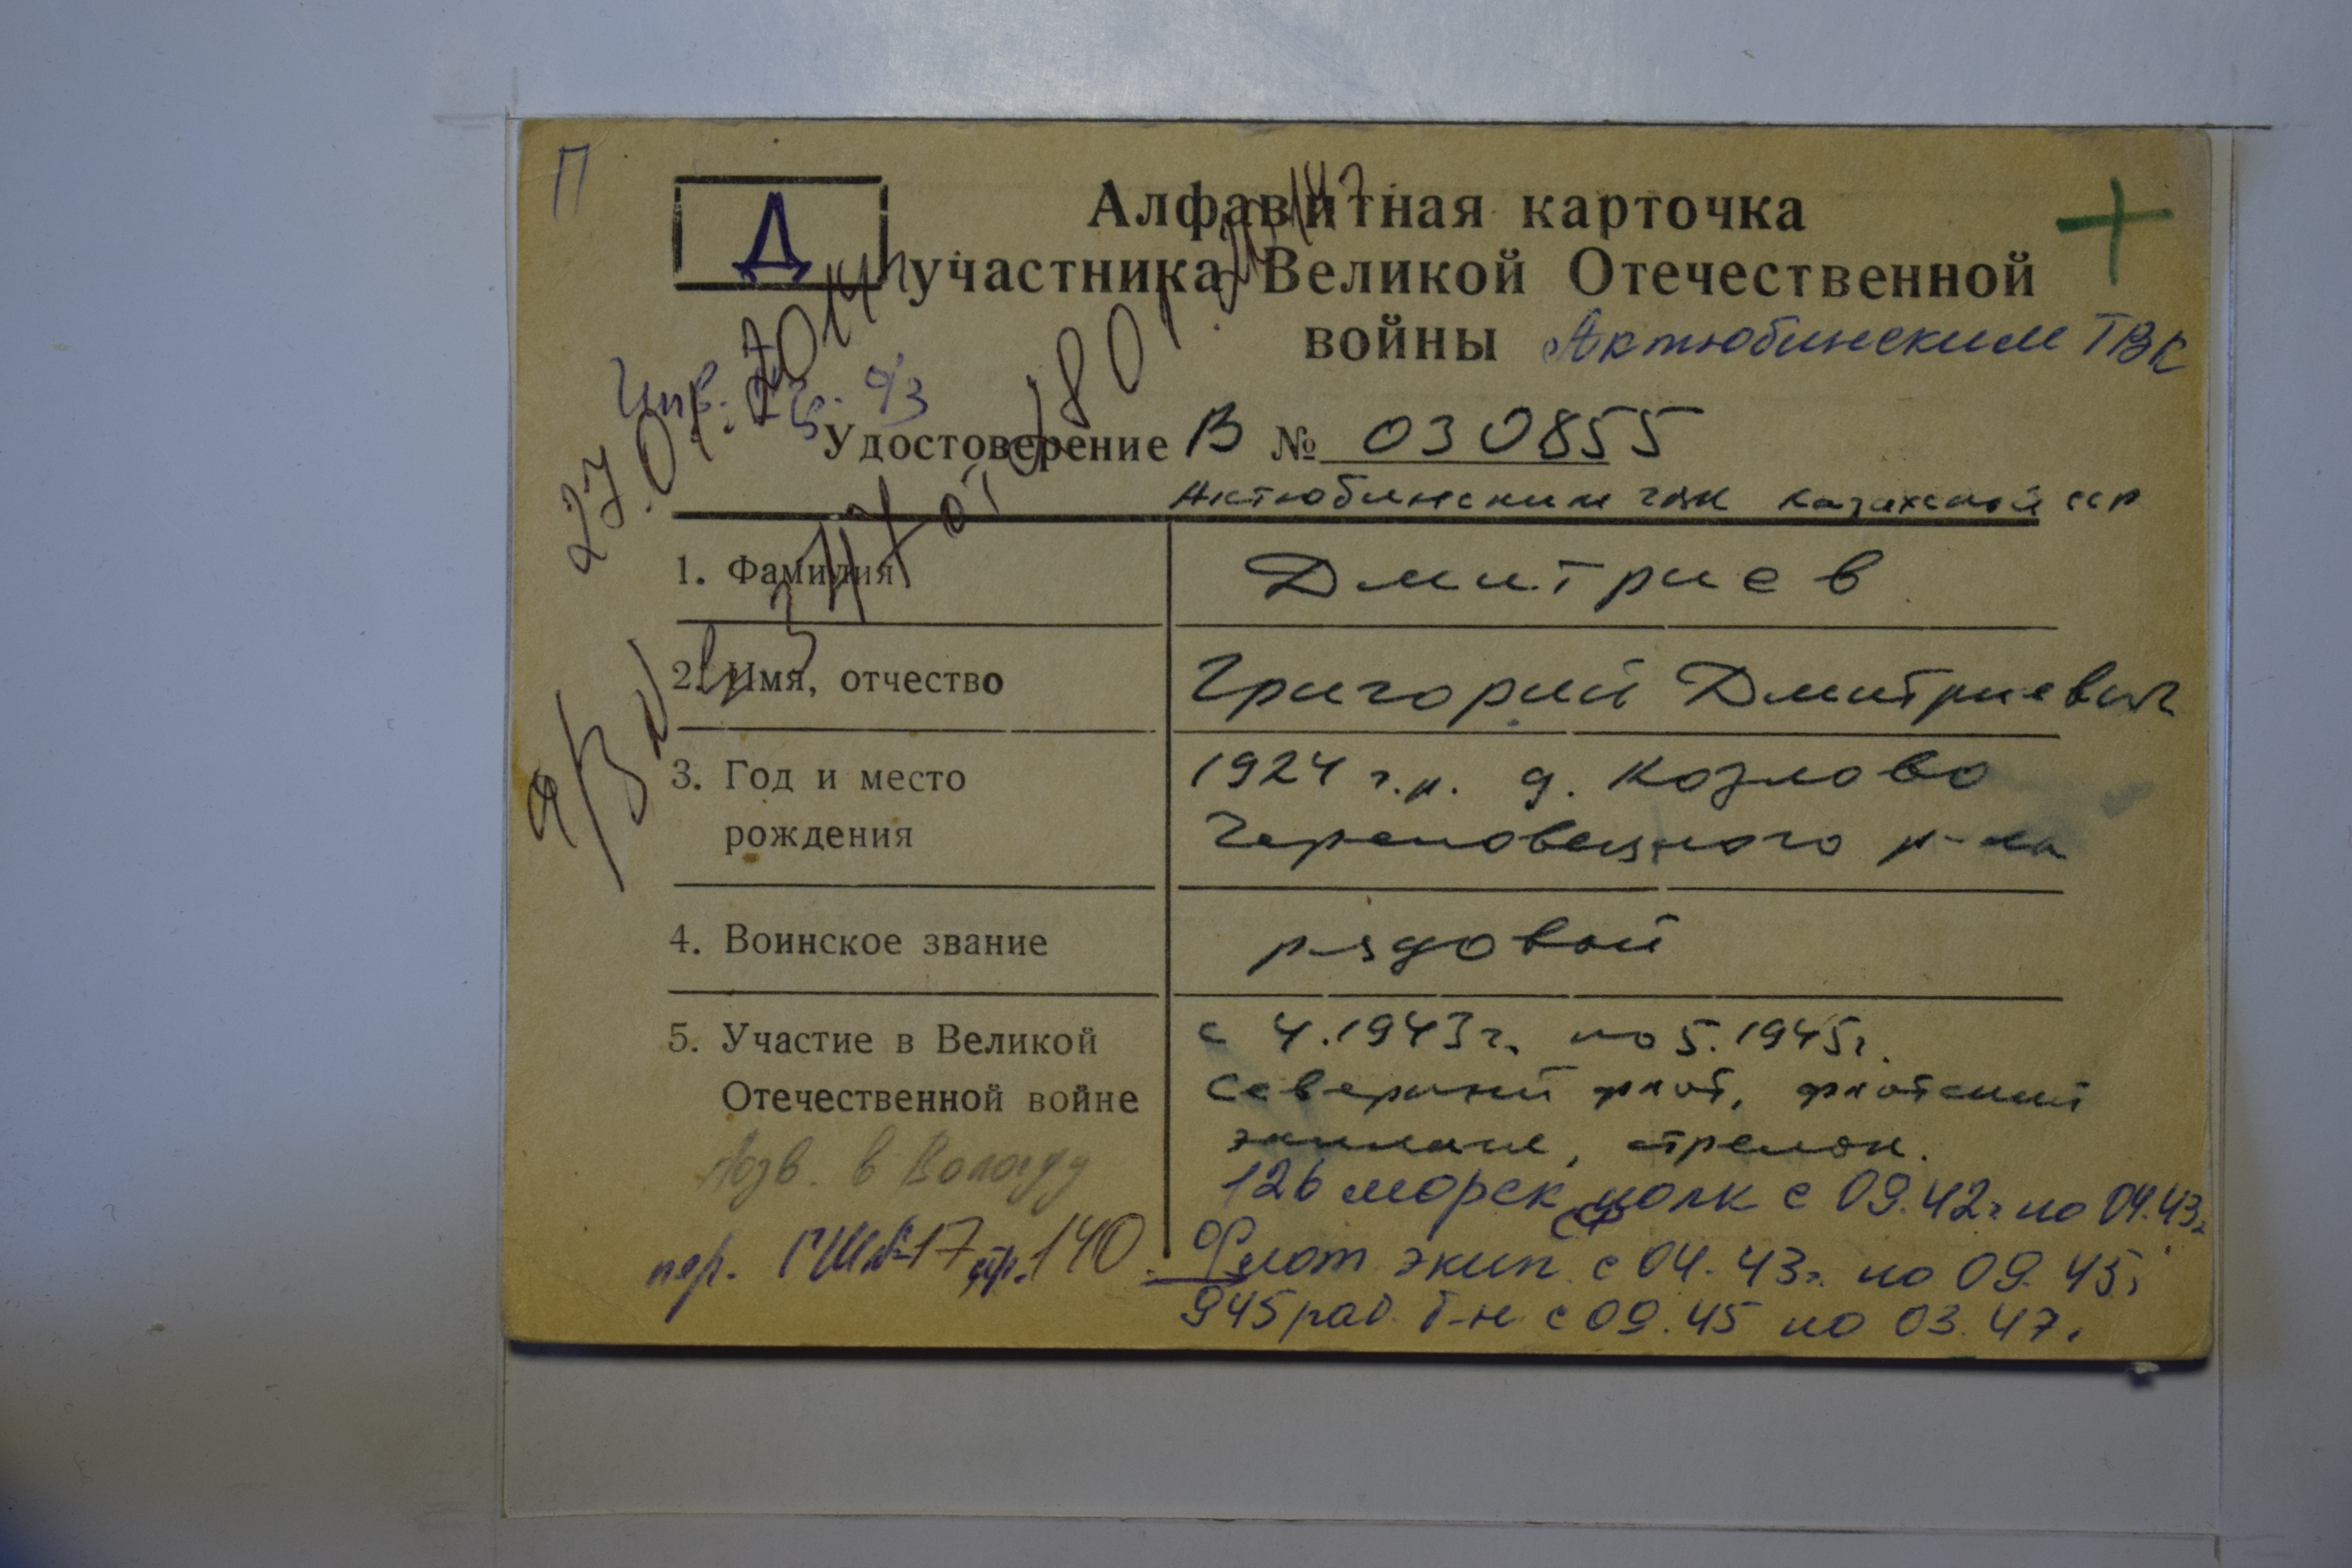 П
Д
Алфавитная карточка
участника Великой Отечественной
войны Актюбинским ГВК
Удостоверение В № 030855
Актюбинским ГВК Казахской ССР
1. Фамилия
Дмитриев
2. Имя, отчество
Григорий Дмитриевич
3. Год и место
рождения
1924 г.р. д. Козлово
Череповецкого р-на
4. Воинское звание
рядовой
5. Участие в Великой
Отечественной войне
с 4.1943г. по 5.1945г.
Северный флот, флотский
экипаж, стрелок.
126 морск полк с 09.42г по 04.43г
СФ
Флот экип с 04.43г. по 09.45г
945 раб. б-н с 09.45 по 03.47.
в Вологду
пер. ГШ №17 стр. 140
27.01.2014